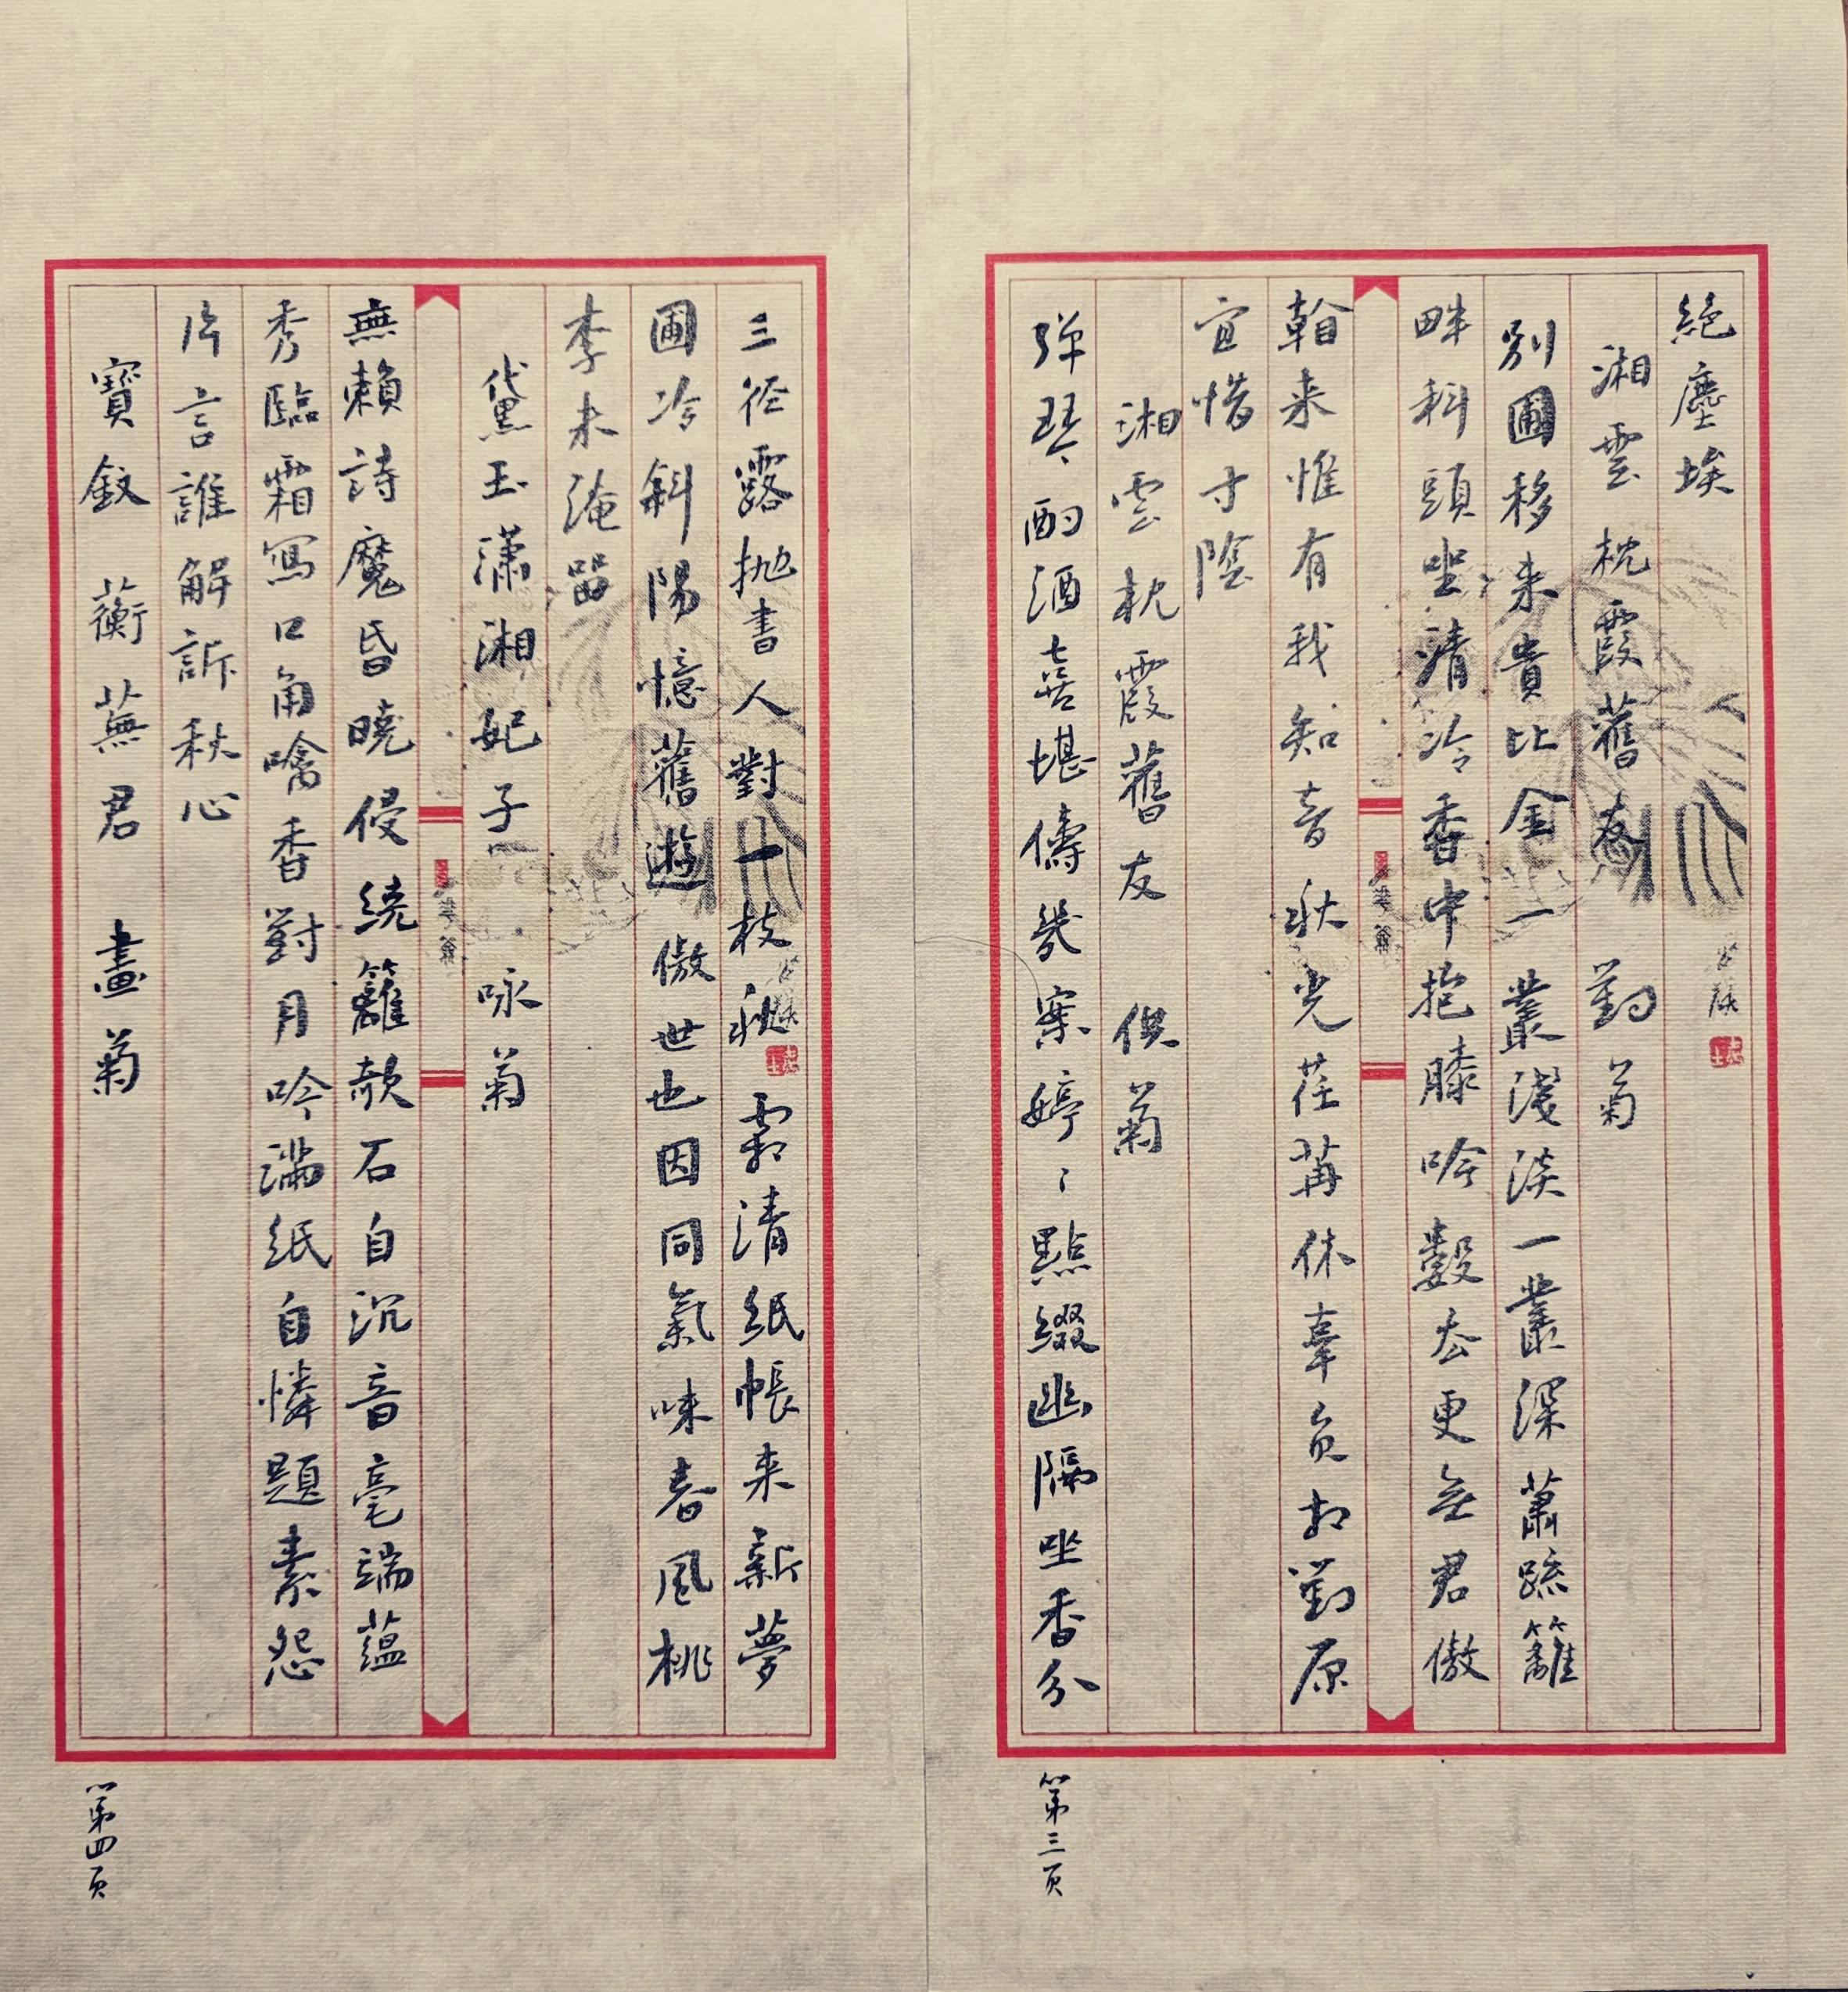 絕塵埃
湘雲 枕霞舊友 對菊
別圃移来貴比金一叢淺淡一叢深蕭疏籬
畔科頭坐清冷香中抱膝吟數去更無君傲
世来惟有我知音秋光荏苒休辜負相對原
宜惜寸陰
湘雲枕霞舊友 供菊
彈琴酌酒喜堪儔幾案婷〻點綴幽隔坐香分
第三页
三徑露抛書人對一枝秋霜清紙帳来新夢
圃冷斜陽憶舊遊傲世也因同氣味春風桃
李未淹留
黛玉瀟湘妃子 咏菊
無賴詩魔昏曉侵繞籬欹石自沉音毫端蘊
秀臨霜寫口角噙香對月吟滿紙自憐題素怨
片言誰解訴秋心
寶釵 蘅蕪君 畫菊
第四页